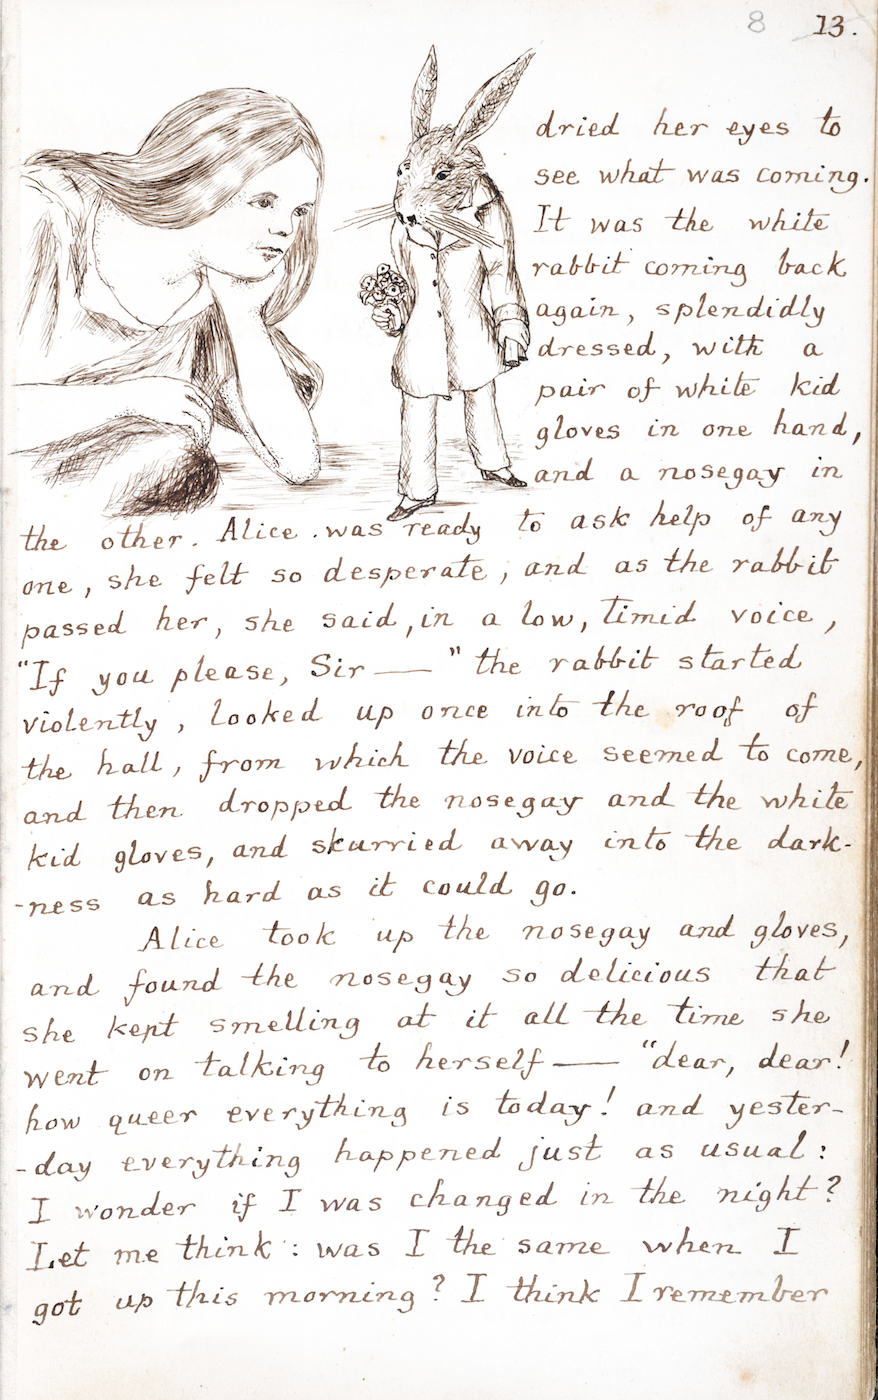 8 13.
dried her eyes to
see what was coming.
It was the white
rabbit coming back
again, splendidly
dressed, with a
pair of white kid
gloves in one hand,
and a nosegay in
the other. Alice was ready to ask help of any
one, she felt so desperate, and as the rabbit
passed her, she said, in a low, timid voice,
"If you please, Sir —" the rabbit started
violently, looked up once into the roof of
the hall, from which the voice seemed to come,
and then dropped the nosegay and the white
kid gloves, and skurried away into the dark-
-ness as hard as it could go.
Alice took up the nosegay and gloves,
and found the nosegay so delicious that
she kept smelling at it all the time she
went on talking to herself — "dear, dear!
how queer everything is today! and yester-
-day everything happened just as usual:
I wonder if I was changed in the night?
Let me think: was I the same when I
got up this morning? I think I remember